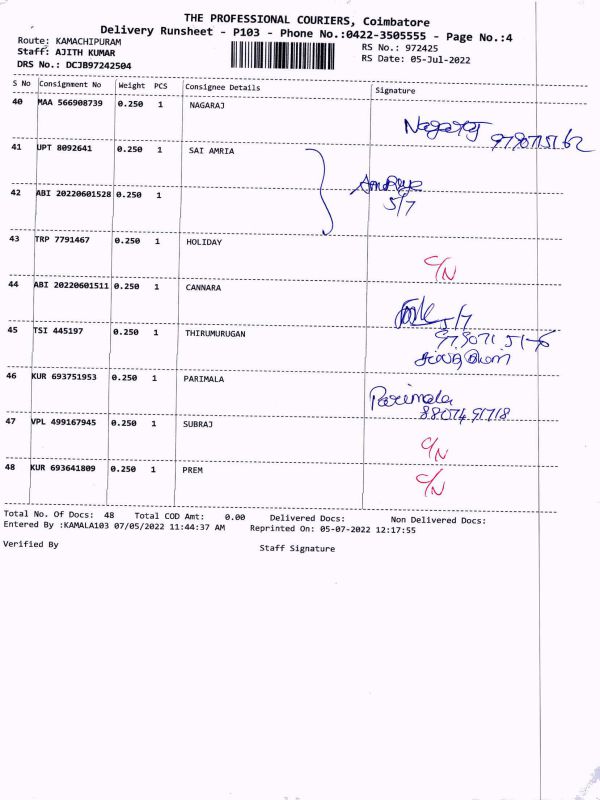 THE PROFESSIONAL COURIERS, Coimbatore
Delivery Runsheet - P103 - Phone No.:0422-3505555 - Page No.:4
Route: KAMACHIPURAM RS No.: 972425
Staff: AJITH KUMAR RS Date: 05-Jul-2022
DRS No.: DCJB97242504
S No Consignment No Weight PCS Consignee Details Signature
40 MAA 566908739 0.250 1 NAGARAJ
Nagaraj
41 UPT 8092641 0.250 1 SAI AMRIA
42 ABI 20220601528 0.250 1
5/7
43 TRP 7791467 0.250 1 HOLIDAY
C/N
44 ABI 20220601511 0.250 1 CANNARA
5/7
45 TSI 445197 0.250 1 THIRUMURUGAN
46 KUR 693751953 0.250 1 PARIMALA
Parimala
88074 91718
47 VPL 499167945 0.250 1 SUBRAJ
C/N
48 KUR 693641809 0.250 1 PREM
C/N
Total No. Of Docs: 48 Total COD Amt: 0.00 Delivered Docs: Non Delivered Docs:
Entered By :KAMALA103 07/05/2022 11:44:37 AM Reprinted On: 05-07-2022 12:17:55
Verified By Staff Signature